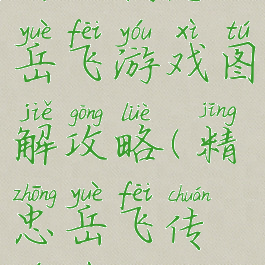 yuè fēi yóu xì tú
岳飞游戏图
jiě gōng lüè jīng
解攻略(精
zhōng yuè fēi chuán
忠岳飞传